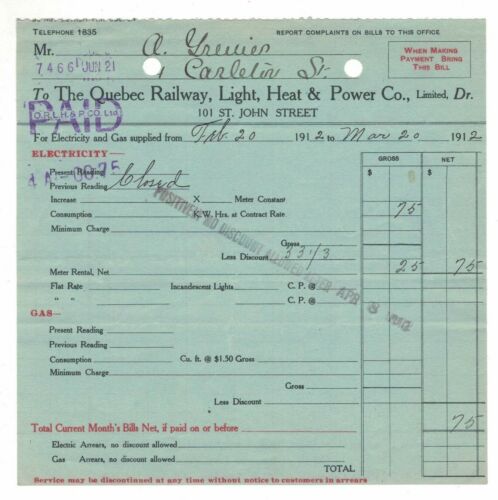 TELEPHONE 1835
REPORT COMPLAINTS ON BILLS TO THIS OFFICE
Mr. A. Grenier
WHEN MAKING PAYMENT BRING THIS BILL
7466 JUN 21
Carleton St.
To The Quebec Railway, Light, Heat & Power Co., Limited, Dr.
101 ST. JOHN STREET
PAID
Q.R.L.H.& P.CO. Ltd.
For Electricity and Gas supplied from Feb. 20 1912 to Mar 20 1912
ELECTRICITY—
GROSS NET
$ $
Present Reading Closed
Previous Reading
Increase X Meter Constant
Consumption K.W. Hrs. at Contract Rate 75
Minimum Charge
POSITIVELY NO DISCOUNT ALLOWED AFTER APR 8
Gross
Less Discount 33 1/3
Meter Rental, Net 25 75
Flat Rate Incandescent Lights C. P. @
" " C. P. @
GAS—
Present Reading
Previous Reading
Consumption Cu. ft. @ $1.50 Gross
Minimum Charge
Gross
Less Discount
Total Current Month's Bills Net, if paid on or before 75
Electric Arrears, no discount allowed
Gas Arrears, no discount allowed
TOTAL
Service may be discontinued at any time without notice to customers in arrears